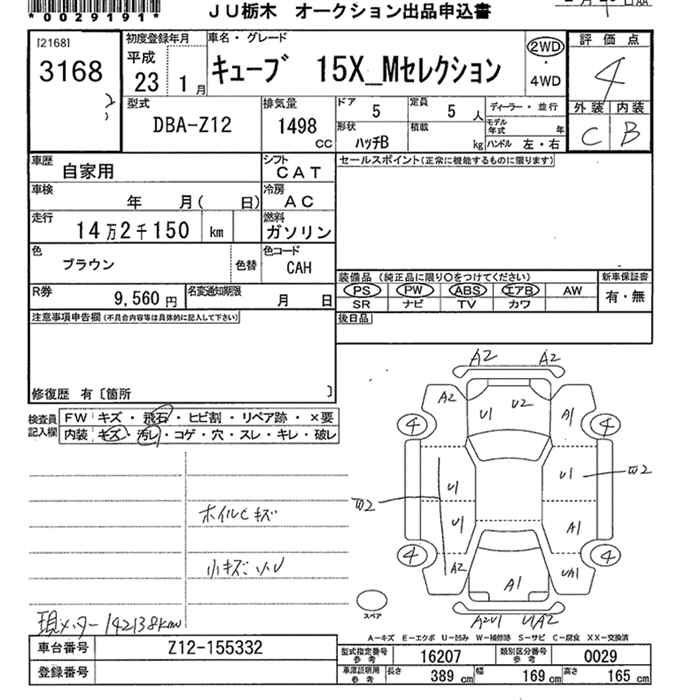 *0029191*
JU栃木 オークション出品申込書
[2168]
3168
初度登録年月
平成
23 1 月
車名・グレード
キューブ 15X_Mセレクション
2WD
・
4WD
評価点
4
外装 内装
C B
型式
DBA-Z12
排気量
1498 cc
ドア 5
定員 5 人
ディーラー・並行
形状 ハッチB
積載 kg
モデル年式 年
ハンドル 左・右
車歴 自家用
シフト CAT
セールスポイント(正常に機能するものに限ります)
車検 年 月( 日)
冷房 AC
走行 14万2千150 km
燃料 ガソリン
色 ブラウン
色替
色コード CAH
装備品 (純正品に限り○をつけてください)
PS PW ABS エアB AW
SR ナビ TV カワ
新車保証書
有・無
R券 9,560 円
名変通知期限 月 日
後日品
注意事項申告欄(不具合内容等は具体的に記入して下さい)
修復歴 有〔箇所 〕
検査員記入欄
FW キズ・飛石・ヒビ割・リペア跡・×要
内装 キズ・汚レ・コゲ・穴・スレ・キレ・破レ
ホイルCキズ
小キズ・ハU
現メーター142138km
A2 A2
A2 U1 U2 A1
4 4
U1 U1 W2
W2 U1 A1
4 4
A2 A1 UA1
スペア
A2U1 U1A2
A-キズ E-エクボ U-凹み W-補修跡 S-サビ C-腐食 XX-交換済
車台番号 Z12-155332
登録番号
型式指定番号 参考 16207
類別区分番号 参考 0029
車庫証明用 参考 長さ 389 cm 幅 169 cm 高さ 165 cm